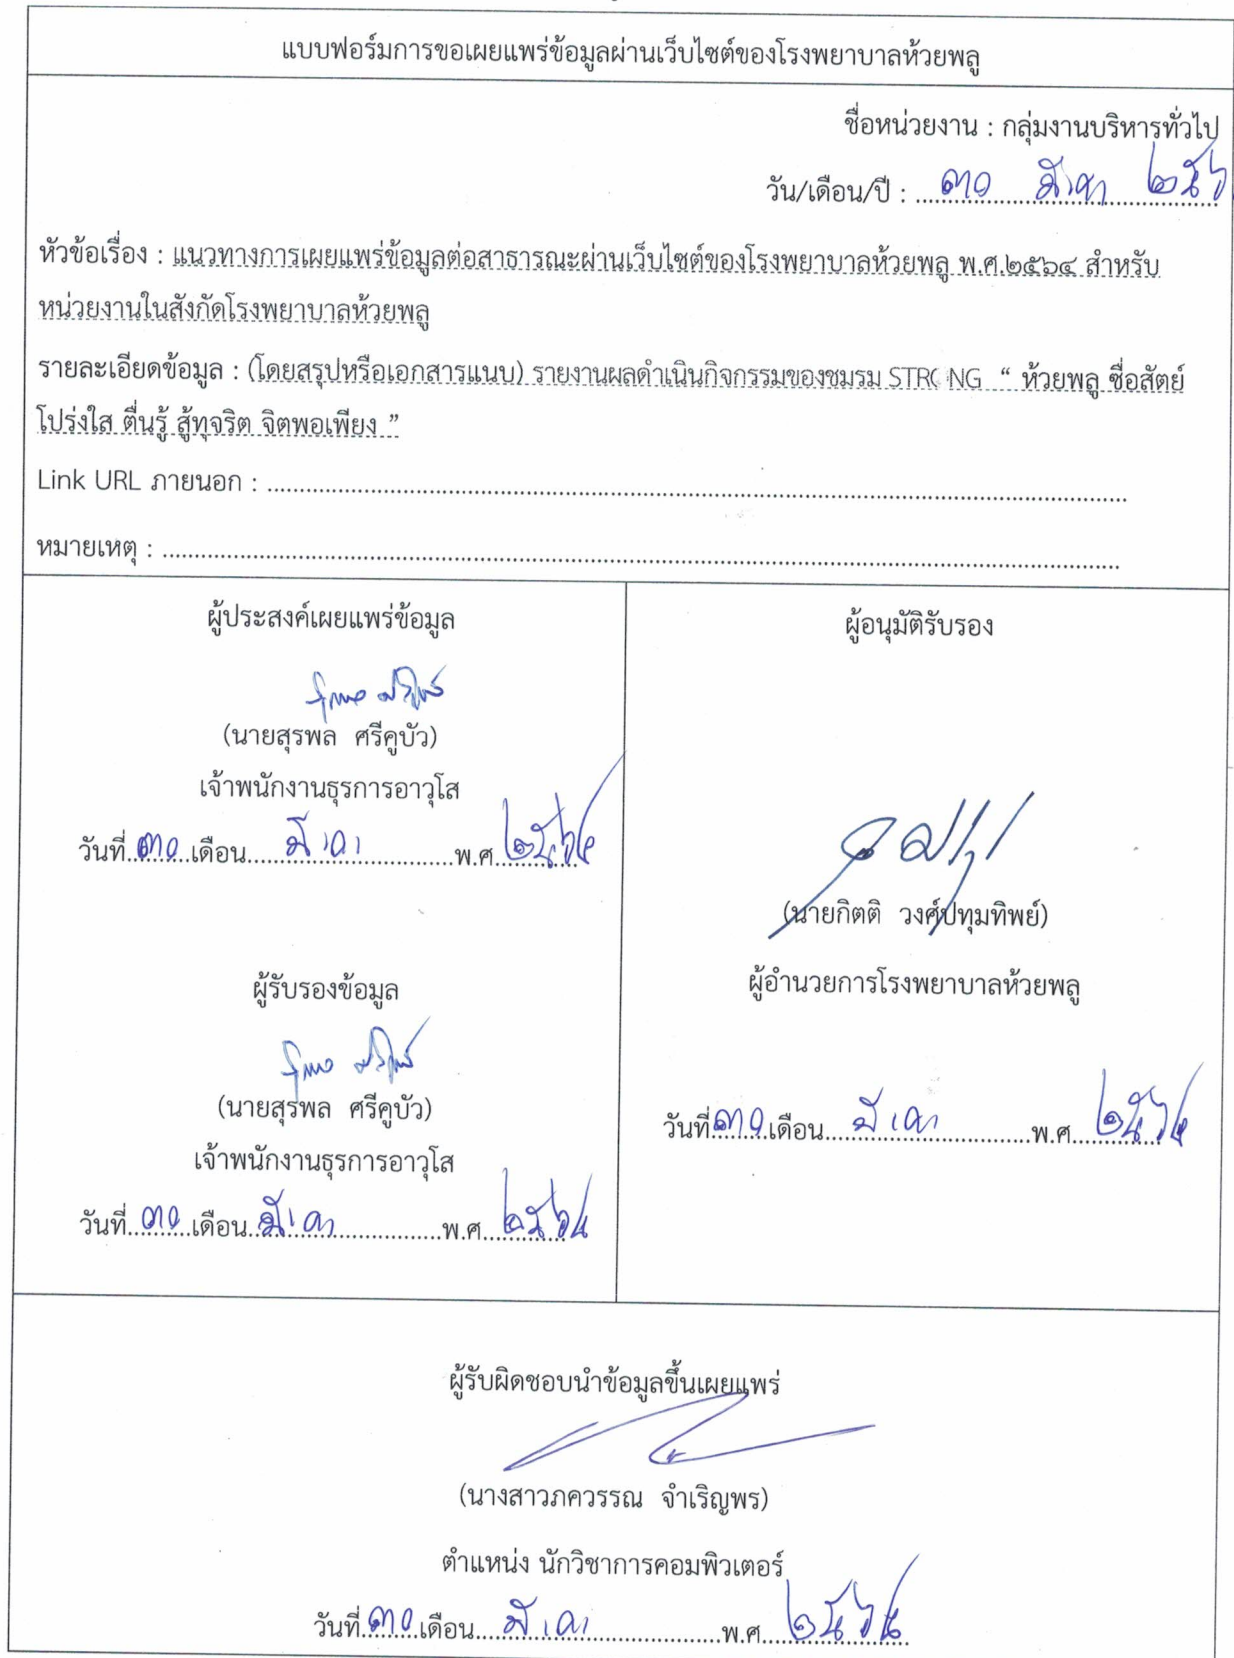 แบบฟอร์มการขอเผยแพร่ข้อมูลผ่านเว็บไซต์ของโรงพยาบาลห้วยพลู
ชื่อหน่วยงาน : กลุ่มงานบริหารทั่วไป
วัน/เดือน/ปี : ๓๐ มีค
หัวข้อเรื่อง : แนวทางการเผยแพร่ข้อมูลต่อสาธารณะผ่านเว็บไซต์ของโรงพยาบาลห้วยพลู พ.ศ.๒๕๖๔ สำหรับ
หน่วยงานในสังกัดโรงพยาบาลห้วยพลู
รายละเอียดข้อมูล : (โดยสรุปหรือเอกสารแนบ) รายงานผลดำเนินกิจกรรมของชมรม STRONG “ ห้วยพลู ซื่อสัตย์
โปร่งใส ตื่นรู้ สู้ทุจริต จิตพอเพียง ”
Link URL ภายนอก :
หมายเหตุ :
ผู้ประสงค์เผยแพร่ข้อมูล
(นายสุรพล ศรีคูบัว)
เจ้าพนักงานธุรการอาวุโส
วันที่ ๓๐ เดือน มีค พ.ศ. ๒๕๖๔
ผู้รับรองข้อมูล
(นายสุรพล ศรีคูบัว)
เจ้าพนักงานธุรการอาวุโส
วันที่ ๓๐ เดือน มีค พ.ศ. ๒๕๖๔
ผู้อนุมัติรับรอง
(นายกิตติ วงศ์ปทุมทิพย์)
ผู้อำนวยการโรงพยาบาลห้วยพลู
วันที่ ๓๐ เดือน มีค พ.ศ. ๒๕๖๔
ผู้รับผิดชอบนำข้อมูลขึ้นเผยแพร่
(นางสาวภควรรณ จำเริญพร)
ตำแหน่ง นักวิชาการคอมพิวเตอร์
วันที่ ๓๐ เดือน มีค พ.ศ. ๒๕๖๔